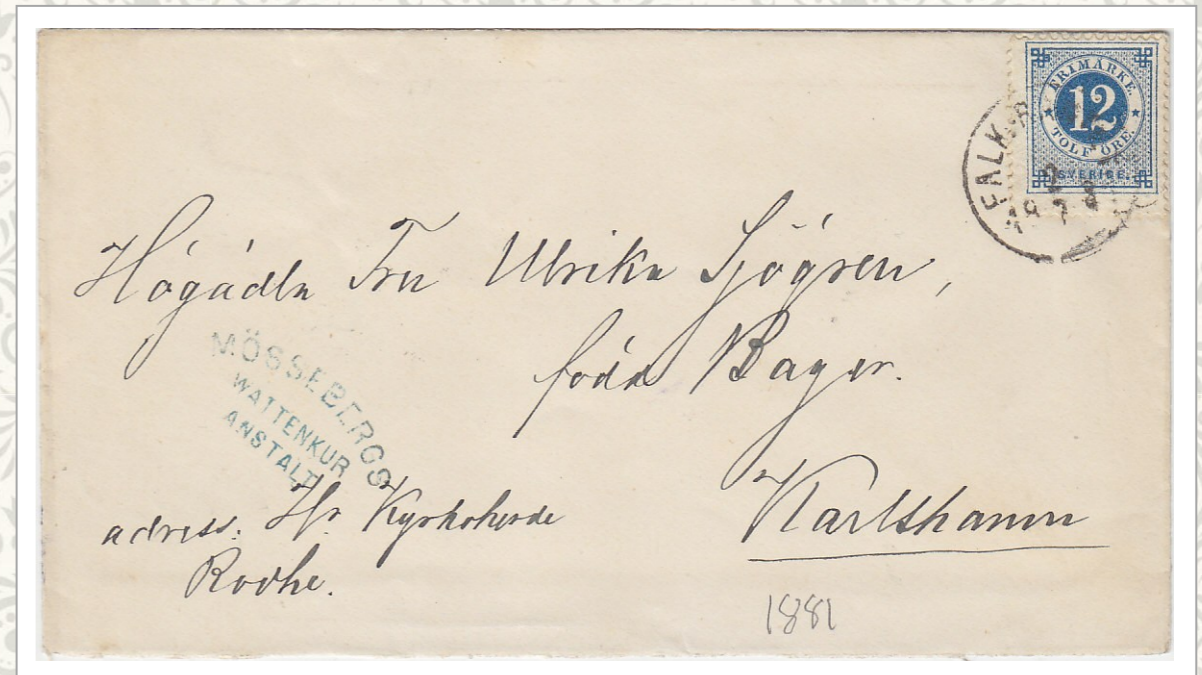 FRIMÄRKE.
12
TOLF ÖRE.
SVERIGE.
FALK
Högädla Fru Ulrika Sjögren,
född Bager.
MÖSSEBERGS
WATTENKUR
ANSTALT
adress. Hr Kyrkoherde
Rodhe.
Karlshamn
1881